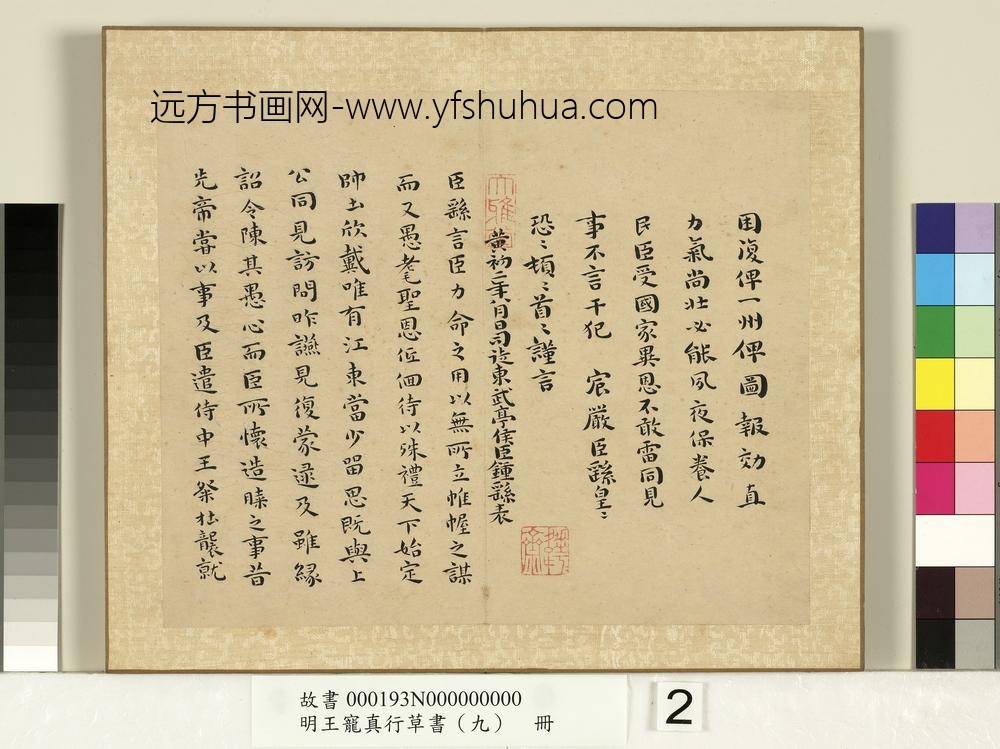 远方书画网-www.yfshuhua.com
困復俾一州俾圖報効直
力氣尚壯必能夙夜保養人
民臣受國家異恩不敢雷同見
事不言干犯 宸嚴臣繇皇〻
恐〻頓〻首〻謹言
黃初二年八月日司徒東武亭侯臣鍾繇表
臣繇言臣力命之用以無所立帷幄之謀
而又愚耄聖恩低佪待以殊禮天下始定
帥土欣戴唯有江東當少留思既與上
公同見訪問昨讌見復蒙逮及雖緣
詔令陳其愚心而臣所懷造膝之事昔
先帝嘗以事及臣遣侍中王粲杜襲就
故書 000193N000000000
明王寵真行草書（九） 冊
2